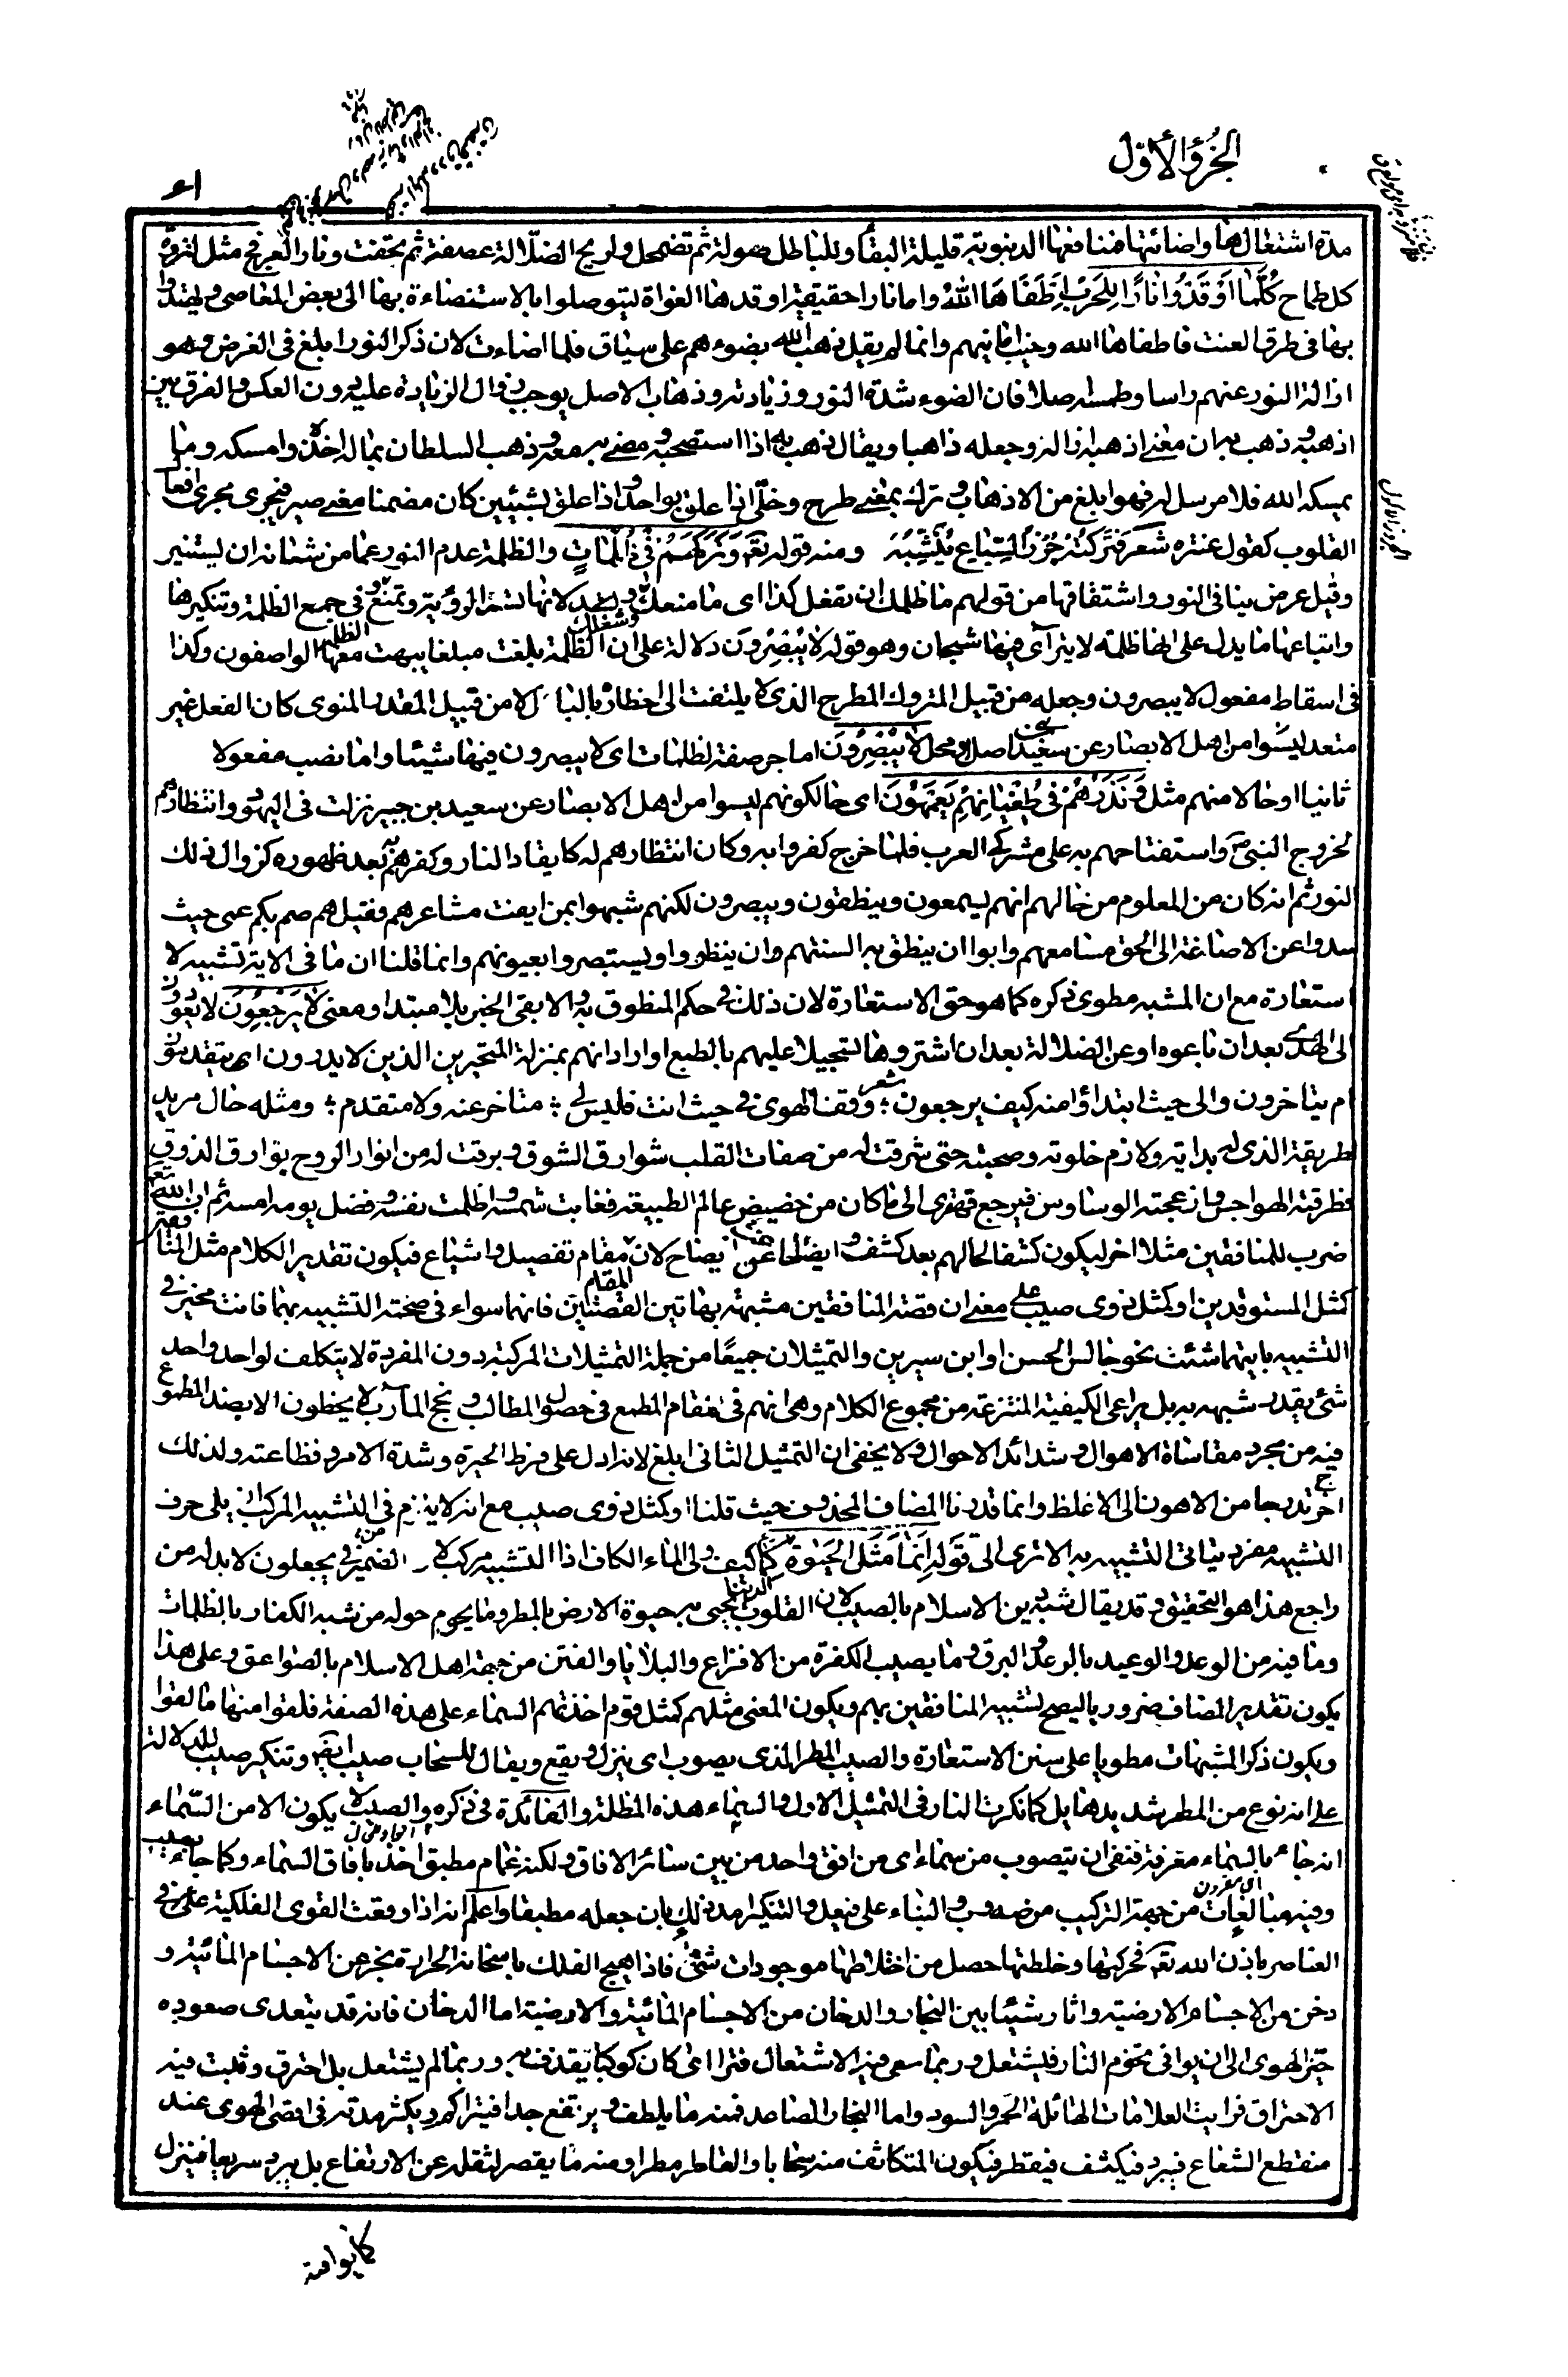 الجزؤ الأول
مدة اشتعالها واضائتها فمنافعها الدنيوية قليلة البقاء وللباطل صولة ثم تضمحل ولريح الضلالة عصفة ثم تخفت ونار العرفج مثل لنزوة
كل طماح كُلَّمَا أَوْقَدُوا نَارًا لِلْحَرْبِ أَطْفَأَهَا اللَّهُ واما نارا حقيقية اوقدها الغواة ليتوصلوا بالاستضاءة بها الى بعض المعاصى ويهتدوا
بها فى طرق العنت فاطفاها الله وخيب امانيهم وانما لم يقل ذهب الله بضوءهم على سياق فلما اضاءت لان ذكر النور ابلغ فى الغرض وهو
ازالة النور عنهم راسا وطمسه اصلا فان الضوء شدة النور وزيادته وذهاب الاصل يوجب زوال الزيادة عليه دون العكس والفرق بين
اذهبه وذهب به ان معنى اذهبه ازاله وجعله ذاهبا ويقال ذهب به اذا استصحبه ومضى به معه وذهب السلطان بماله اخذه وامسكه وما
يمسكه الله فلا مرسل له فهو ابلغ من الاذهاب وترك بمعنى طرح وخلّى اذا علق بواحد واذا علق بشيئين كان مضمنا معنى صير فيجرى مجرى افعال
القلوب كقول عنترة شعر فَتَرَكْتُهُ جُزُرَ السِّبَاعِ يَنُشْنَهُ ومنه قوله تعم وَتَرَكَهُمْ فِي ظُلُمَاتٍ والظلمة عدم النور عما من شانه ان يستنير
وقيل عرض ينافى النور واشتقاقها من قولهم ما ظلمك ان تفعل كذا اى ما منعك وشغلك لانها تسد الرؤية وتمنع وفى جمع الظلمة وتنكيرها
واتباعها ما يدل على انها ظلمة لا يترآى فيها شبحان وهو قوله لَا يُبْصِرُونَ دلالة على ان الظلمة بلغت مبلغا يبهت معها الواصفون وكذا
فى اسقاط مفعول لا يبصرون وجعله من قبيل المتروك المطرح الذى لا يلتفت الى اخطاره بالبال لا من قبيل المقدر المنوى كان الفعل غير
متعد اصلا ومحل لَا يُبْصِرُونَ اما جر صفة لظلمات اى لا يبصرون فيها شيئا واما نصب مفعولا
ثانيا او حالا منهم مثل وَنَذَرُهُمْ فِي طُغْيَانِهِمْ يَعْمَهُونَ اى حالكونهم ليسوا من اهل الابصار عن سعيد بن جبير نزلت فى اليهود وانتظارهم
لخروج النبى ص واستفتاحهم به على مشركى العرب فلما خرج كفروا به وكان انتظارهم له كايقاد النار وكفرهم به بعد ظهوره كزوال ذلك
النور ثم انه كان من المعلوم من حالهم انهم يسمعون وينطقون ويبصرون لكنهم شبهوا بمن ايفت مشاعرهم فقيل هم صم بكم عمى حيث
سدوا عن الاصاخة الى الحق مسامعهم وابوا ان ينطق به السنتهم وان ينظروا ويستبصروا بعيونهم وانما قلنا ان ما فى الاية تشبيه لا
استعارة مع ان المشبه مطوى ذكره كما هو حق الاستعارة لان ذلك فى حكم المنطوق به والا بقى الخبر بلا مبتدا ومعنى لَا يَرْجِعُونَ لا يعودون
الى الهدى بعد ان باعوه او عن الضلالة بعد ان اشتروها تسجيلا عليهم بالطبع او اراد انهم بمنزلة المتحيرين الذين لا يدرون ايتقدمون
ام يتاخرون والى حيث ابتداؤا منه كيف يرجعون شعر وقف الهوى فى حيث انت فليس لى : متاخر عنه ولا متقدم : ومثله حال مريد
طريقة الذى له بداية ولازم خلوته وصحبته حتى شرقت له من صفات القلب شوارق الشوق وبرقت له من انوار الروح بوارق الذوق
فطرقته الهواجس وازعجته الوساوس فيرجع قهقرى الى ما كان من حضيض عالم الطبيعة فغابت شمسه واظلمت نفسه وفضل يومه امسه ثم ان الله تعم
ضرب للمنافقين مثلا اخر ليكون كشفا لحالهم بعد كشف وايضاحا غب ايضاح لان المقام مقام تفصيل واشباع فيكون تقدير الكلام مثل المنافقين
كمثل المستوقدين او كمثل ذوى صيب على معنى ان قصة المنافقين مشبهة بهاتين القصتين فانهما سواء فى صحة التشبيه بهما فانت مخير فى
التشبيه بايتهما شئت نحو جالس الحسن او ابن سيرين والتمثيلان جميعًا من جملة التمثيلات المركبة دون المفردة لا يتكلف لواحد واحد
شئ يقدر شبهه به بل يراعى الكيفية المنتزعة من مجموع الكلام وهى انهم فى مقام المطمع فى حصول المطالب ونجح المآرب لا يحظون الا بضد المطموع
فيه من مجرد مقاساة الاهوال وشدائد الاحوال ولا يخفى ان التمثيل الثانى ابلغ لانه ادل على فرط الحيرة وشدة الامر وفظاعته ولذلك
اخر تدريجا من الاهون الى الاغلظ وانما قدرنا المضاف المحذوف حيث قلنا او كمثل ذوى صيب مع انه لا يلزم فى التشبيه المركب ان يلى حرف
التشبيه مفرد يتاتى التشبيه به الا ترى الى قوله إِنَّمَا مَثَلُ الْحَيَوٰةِ الدنيا كماء كيف ولى الماء الكاف اذا التشبيه مركب لان الضمير فى يجعلون لا بد له من
راجع هذا هو التحقيق وقد يقال شبه دين الاسلام بالصيب لان القلوب تحيى به حيوة الارض بالمطر وما يحوم حوله من شبه الكفار بالظلمات
وما فيه من الوعد والوعيد بالرعد والبرق وما يصيب الكفرة من الافزاع والبلايا والفتن من جهة اهل الاسلام بالصواعق وعلى هذا
يكون تقدير المضاف ضروريا ليصح تشبيه المنافقين بهم ويكون المعنى مثلهم كمثل قوم اخذتهم السماء على هذه الصفة فلقوا منها ما لقوا
ويكون ذكر المشبهات مطويا على سنن الاستعارة والصيب المطر الذى يصوب اى ينزل ويقع ويقال للسحاب صيب ايضا وتنكير صيب للدلالة
على انه نوع من المطر شديد هايل كما نكرت النار فى التمثيل الاول والسماء هذه المظلة والفائدة فى ذكره والصيب لا يكون الا من السماء
انه جاء بالسماء معرفة فنفى ان يتصوب من سماء اى من افق واحد من بين سائر الافاق ولكنه غمام مطبق اخذ بافاق السماء وكما جاء بصيب
وفيه مبالغات من جهة التركيب من ص و ب والبناء على فيعل والتنكير امد ذلك بان جعله مطبقا واعلم انه اذا وقعت القوى الفلكية على
العناصر باذن الله تعم فحركتها وخلطتها حصل من اختلاطها موجودات شتى فاذا هيج الفلك باسخانه الحرارة بخر عن الاجسام المائية و
دخن من الاجسام الارضية واثار شيئا بين البخار والدخان من الاجسام المائية والارضية اما الدخان فانه قد يتعدى صعوده
حيز الهوى الى ان يوافى تخوم النار فيشتعل وربما سعى فيه الاشتعال فترااى كان كوكبا يقذف به وربما لم يشتعل بل احترق وثبت فيه
الاحتراق فرايت العلامات الهائلة الحمر والسود واما البخار الصاعد فمنه ما يلطف ويرتفع جدا فيتراكم ويكثر مدته فى اقصى الهوى عند
منقطع الشعاع فيبرد فيكثف فيقطر فيكون المتكاثف منه سحابا والقاطر مطرا ومنه ما يقصر لثقله عن الارتفاع بل يبرد سريعا فينزل
كما يوافيه